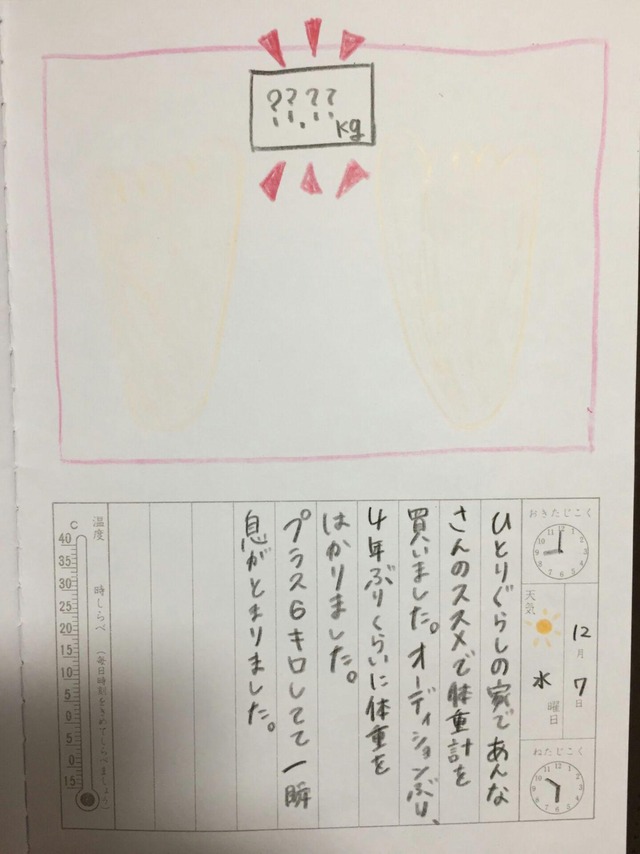 ??.??
kg
おきたじこく
12月7日
天気
水曜日
ねたじこく
ひとりぐらしの家であんな
さんのススメで体重計を
買いました。オーディションぶり、
4年ぶりくらいに体重を
はかりました。
プラス6キロしてて一瞬
息がとまりました。
温度
時しらべ
(毎日時刻をきめてしらべましょう)
C
40
35
30
25
20
15
10
5
0
5
0
15